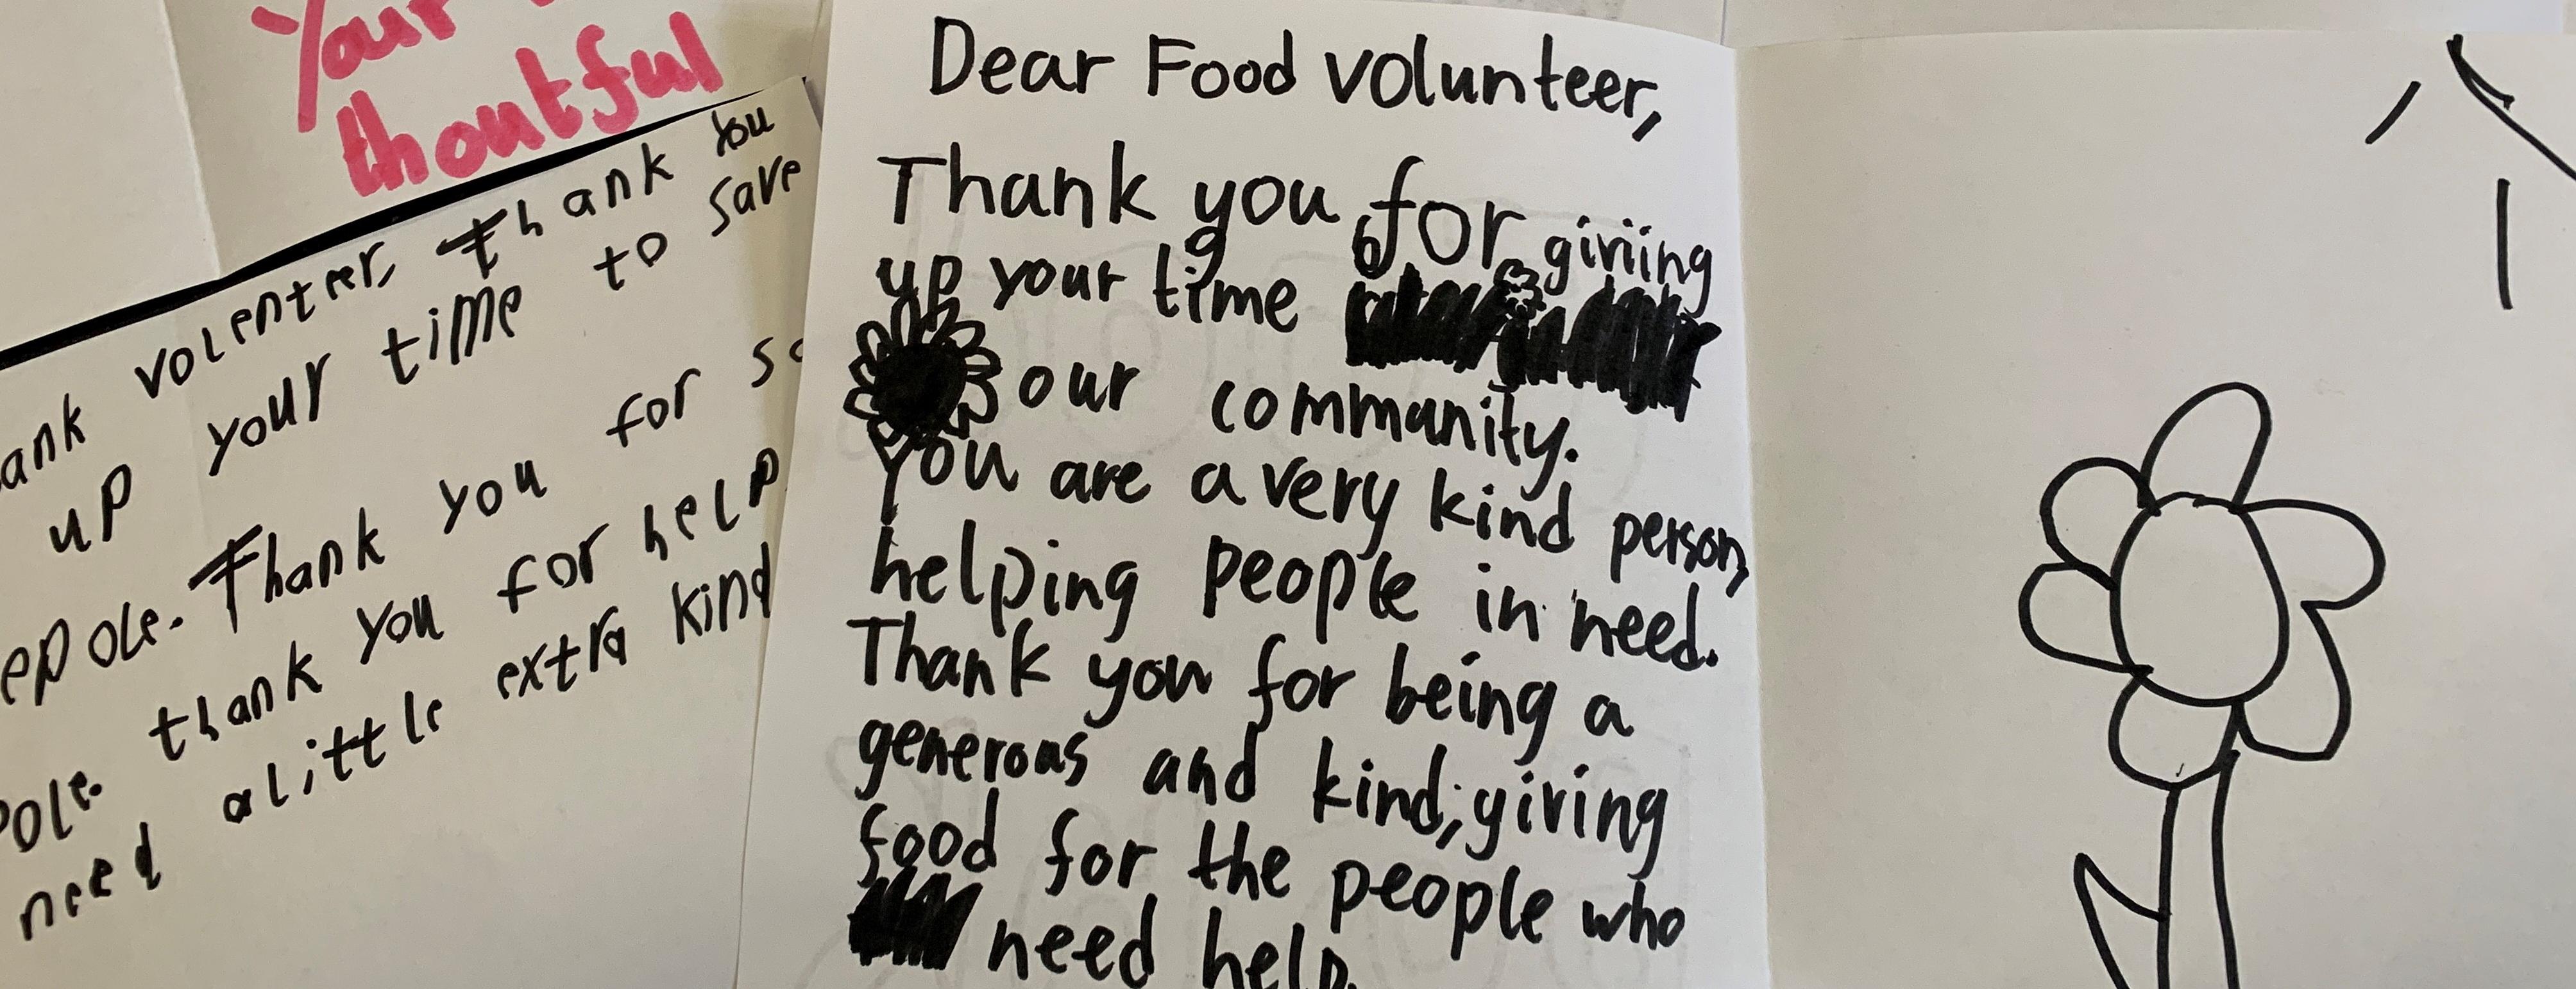 Your
thoutful
ank volenteer, thank you
up your time to save
epole. Thank you for
pole. thank you for help
need a little extra kind
Dear Food volunteer,
Thank you for giviing
up your time
our community.
You are a very kind person,
helping people in need.
Thank you for being a
generous and kind, giving
food for the people who
need help.